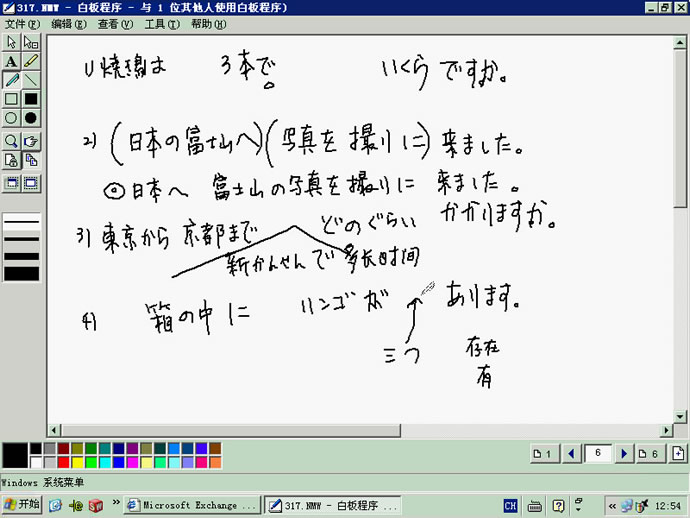 317.NMW - 白板程序 - 与 1 位其他人使用白板程序)
文件(F) 编辑(E) 查看(V) 工具(T) 帮助(H)
1) 焼鳥は 3本で。 いくらですか。
2) (日本の富士山へ)(写真を撮りに)来ました。
◎日本へ 富士山の写真を撮りに 来ました。
3) 東京から 京都まで どのぐらい かかりますか。
新かんせんで 多长时间
4) 箱の中に リンゴが あります。
三つ 存在
有
1 6 6
Windows 系统菜单
开始 » Microsoft Exchange ... 317.NMW - 白板程序 ... CH « 12:54